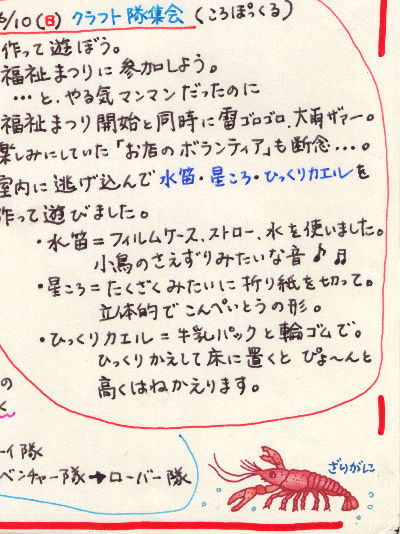 /10(日) クラフト隊集会 (ころぽっくる)
作って遊ぼう。
福祉まつりに参加しよう。
…と、やる気マンマンだったのに
福祉まつり開始と同時に雷ゴロゴロ、大雨ザァー。
楽しみにしていた「お店のボランティア」も断念…。
室内に逃げ込んで水笛・星ころ・ひっくりカエルを
作って遊びました。
・水笛=フィルムケース、ストロー、水を使いました。
小鳥のさえずりみたいな音♪♬
・星ころ=たんざくみたいに折り紙を切って。
立体的でこんぺいとうの形。
・ひっくりカエル=牛乳パックと輪ゴムで。
ひっくりかえして床に置くとぴょ〜んと
高くはねかえります。
の
く
ーイ隊
ベンチャー隊→ローバー隊
ざりがに